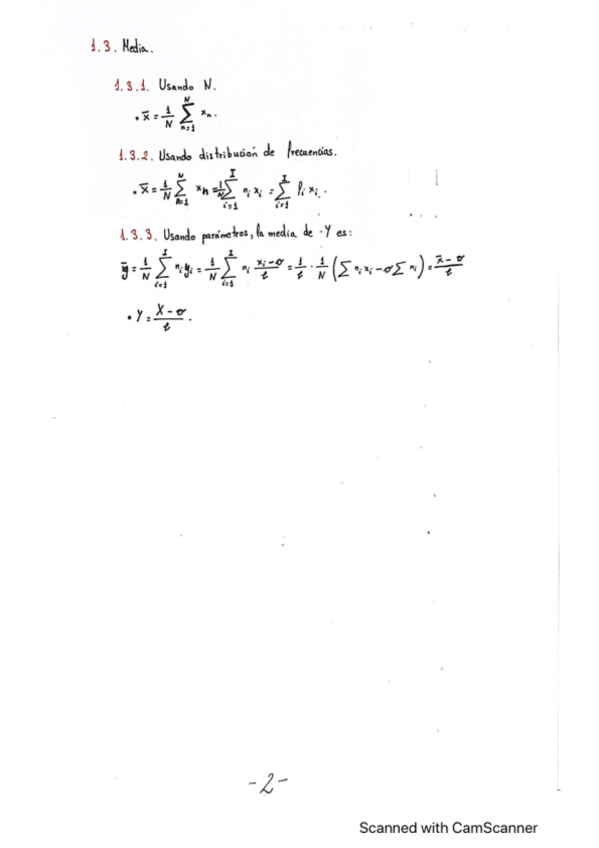 1.3. Media.
1.3.1. Usando N.
• x̄ = 1/N ∑_{n=1}^{N} xₙ.
1.3.2. Usando distribución de frecuencias.
• x̄ = 1/N ∑_{n=1}^{N} xₙ = 1/N ∑_{i=1}^{I} nᵢ xᵢ = ∑_{i=1}^{I} fᵢ xᵢ.
1.3.3. Usando parámetros, la media de Y es:
ȳ = 1/N ∑_{i=1}^{I} nᵢ yᵢ = 1/N ∑_{i=1}^{I} nᵢ (xᵢ - σ)/t = 1/t · 1/N (∑ nᵢ xᵢ - σ ∑ nᵢ) = (x̄ - σ)/t
• Y = (X - σ)/t.
-2-
Scanned with CamScanner